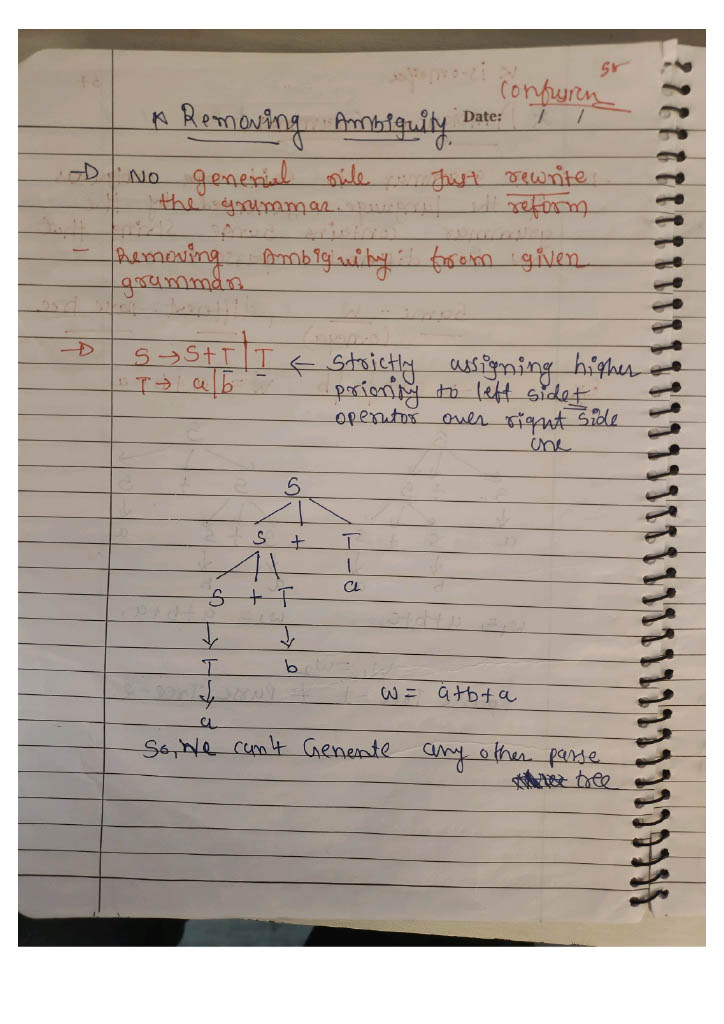 58
Confusion
* Removing Ambiguity. Date: / /
→ No general rule Just rewrite
the grammar. reform
- Removing Ambiguity from given
grammar.
→ S → S+T | T ← Strictly assigning higher
T → a|b priority to left side +
operator over right side
one
S
S + T
S + T a
T b
a w = a+b+a
So, We can't Generate any other parse
tree